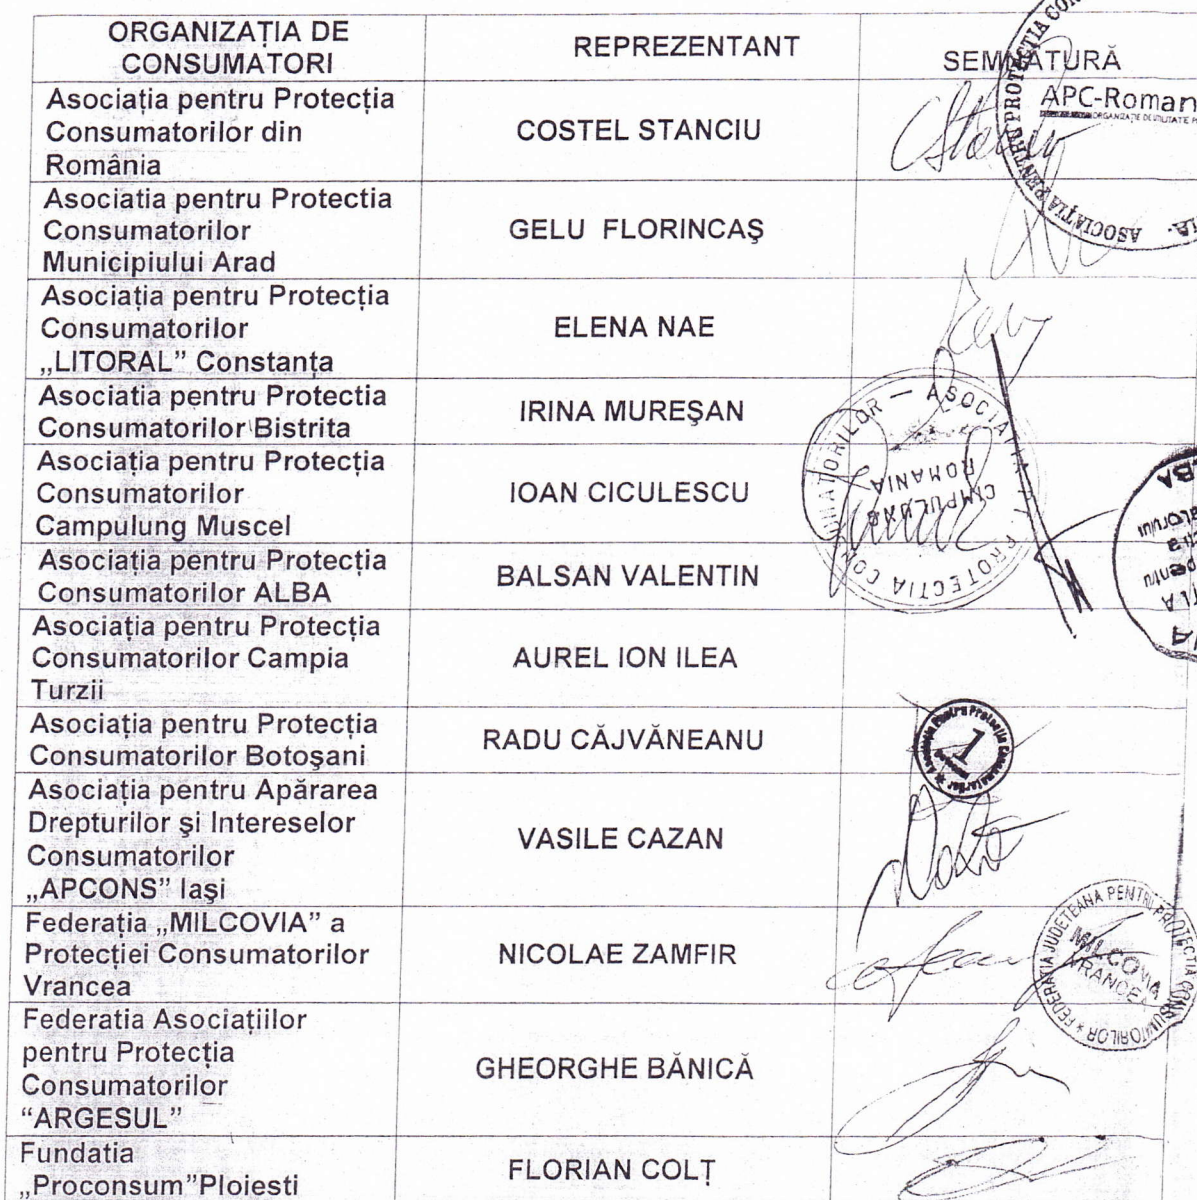 ORGANIZAȚIA DE
CONSUMATORI
REPREZENTANT
SEMNĂTURĂ
Asociația pentru Protecția
Consumatorilor din
România
COSTEL STANCIU
APC-Roman
Asociatia pentru Protectia
Consumatorilor
Municipiului Arad
GELU FLORINCAŞ
Asociația pentru Protecția
Consumatorilor
„LITORAL” Constanța
ELENA NAE
Asociatia pentru Protectia
Consumatorilor Bistrita
IRINA MUREŞAN
Asociația pentru Protecția
Consumatorilor
Campulung Muscel
IOAN CICULESCU
ROMANIA
CIMPULUNG
Asociația pentru Protecția
Consumatorilor ALBA
BALSAN VALENTIN
Asociația pentru Protecția
Consumatorilor Campia
Turzii
AUREL ION ILEA
Asociația pentru Protecția
Consumatorilor Botoşani
RADU CĂJVĂNEANU
1
Asociația pentru Apărarea
Drepturilor şi Intereselor
Consumatorilor
„APCONS” Iaşi
VASILE CAZAN
Federația „MILCOVIA” a
Protecției Consumatorilor
Vrancea
NICOLAE ZAMFIR
FEDERATIA JUDETEANA PENTRU PROTECTIA CONSUMATORILOR
MILCOVIA
VRANCEA
Federatia Asociațiilor
pentru Protecția
Consumatorilor
“ARGESUL”
GHEORGHE BĂNICĂ
Fundatia
„Proconsum”Ploiesti
FLORIAN COLȚ